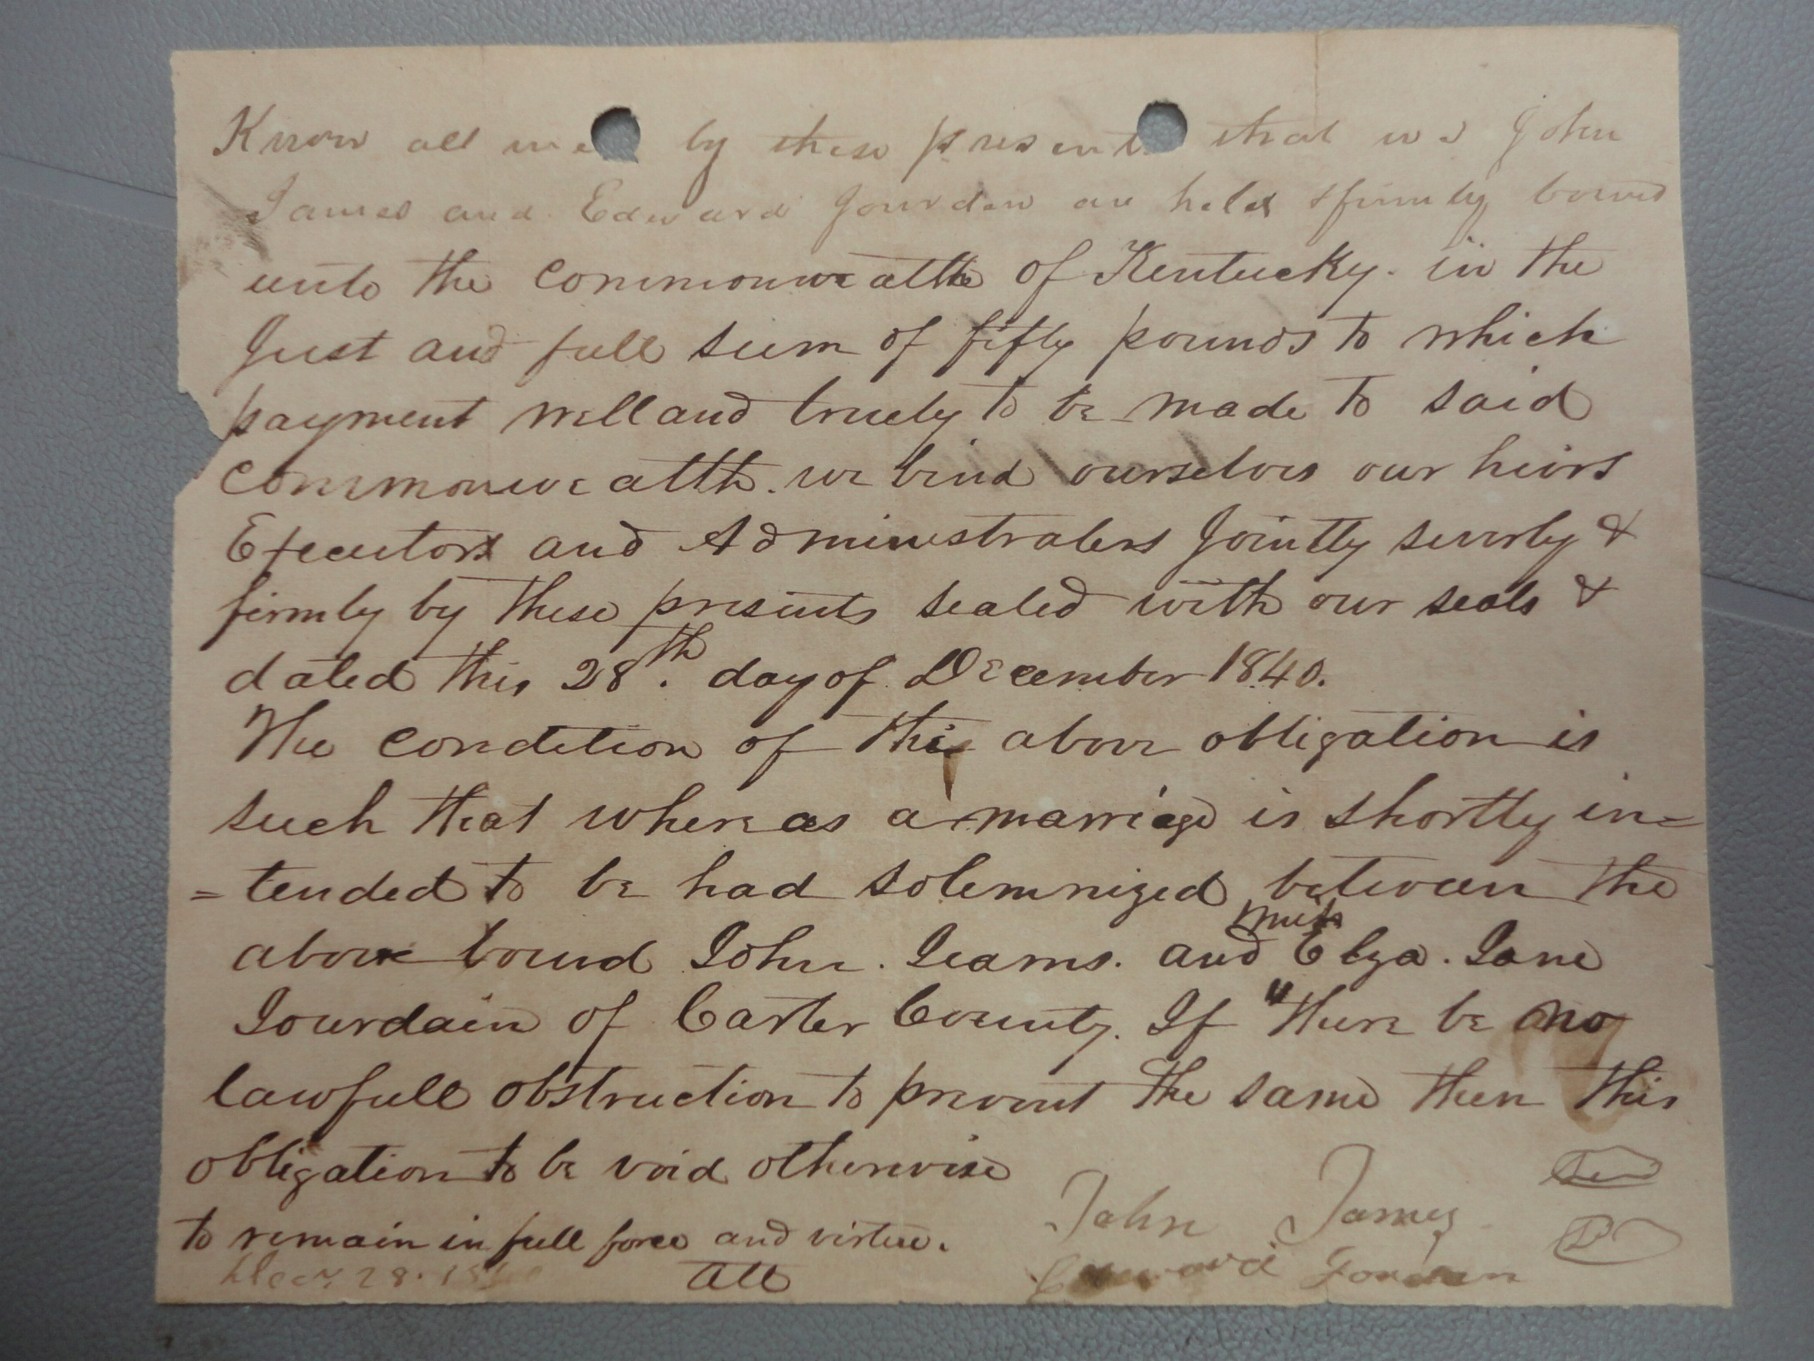 Know all me by these present that we John
James and Edward Jourden are held & firmly bound
unto the Commonwealth of Kentucky. in the
Just and full sum of fifty pounds to which
payment well and truely to be made to said
Commonwealth. we bind ourselves our heirs
Executors and Administraters Jointly severly &
firmly by these presents sealed with our seals &
dated this 28th. day of December 1840.
The condition of this above obligation is
such that whereas a marriage is shortly in=
=tended to be had solemnized between the
Miss
above bound John. Jeams. and Elza. Jane
Jourdain of Carter County. If there be no
lawfull obstruction to prevent the same then this
obligation to be void otherwise
to remain in full force and virtue.
John James
Edward Jorden
Att
Decr. 28. 18